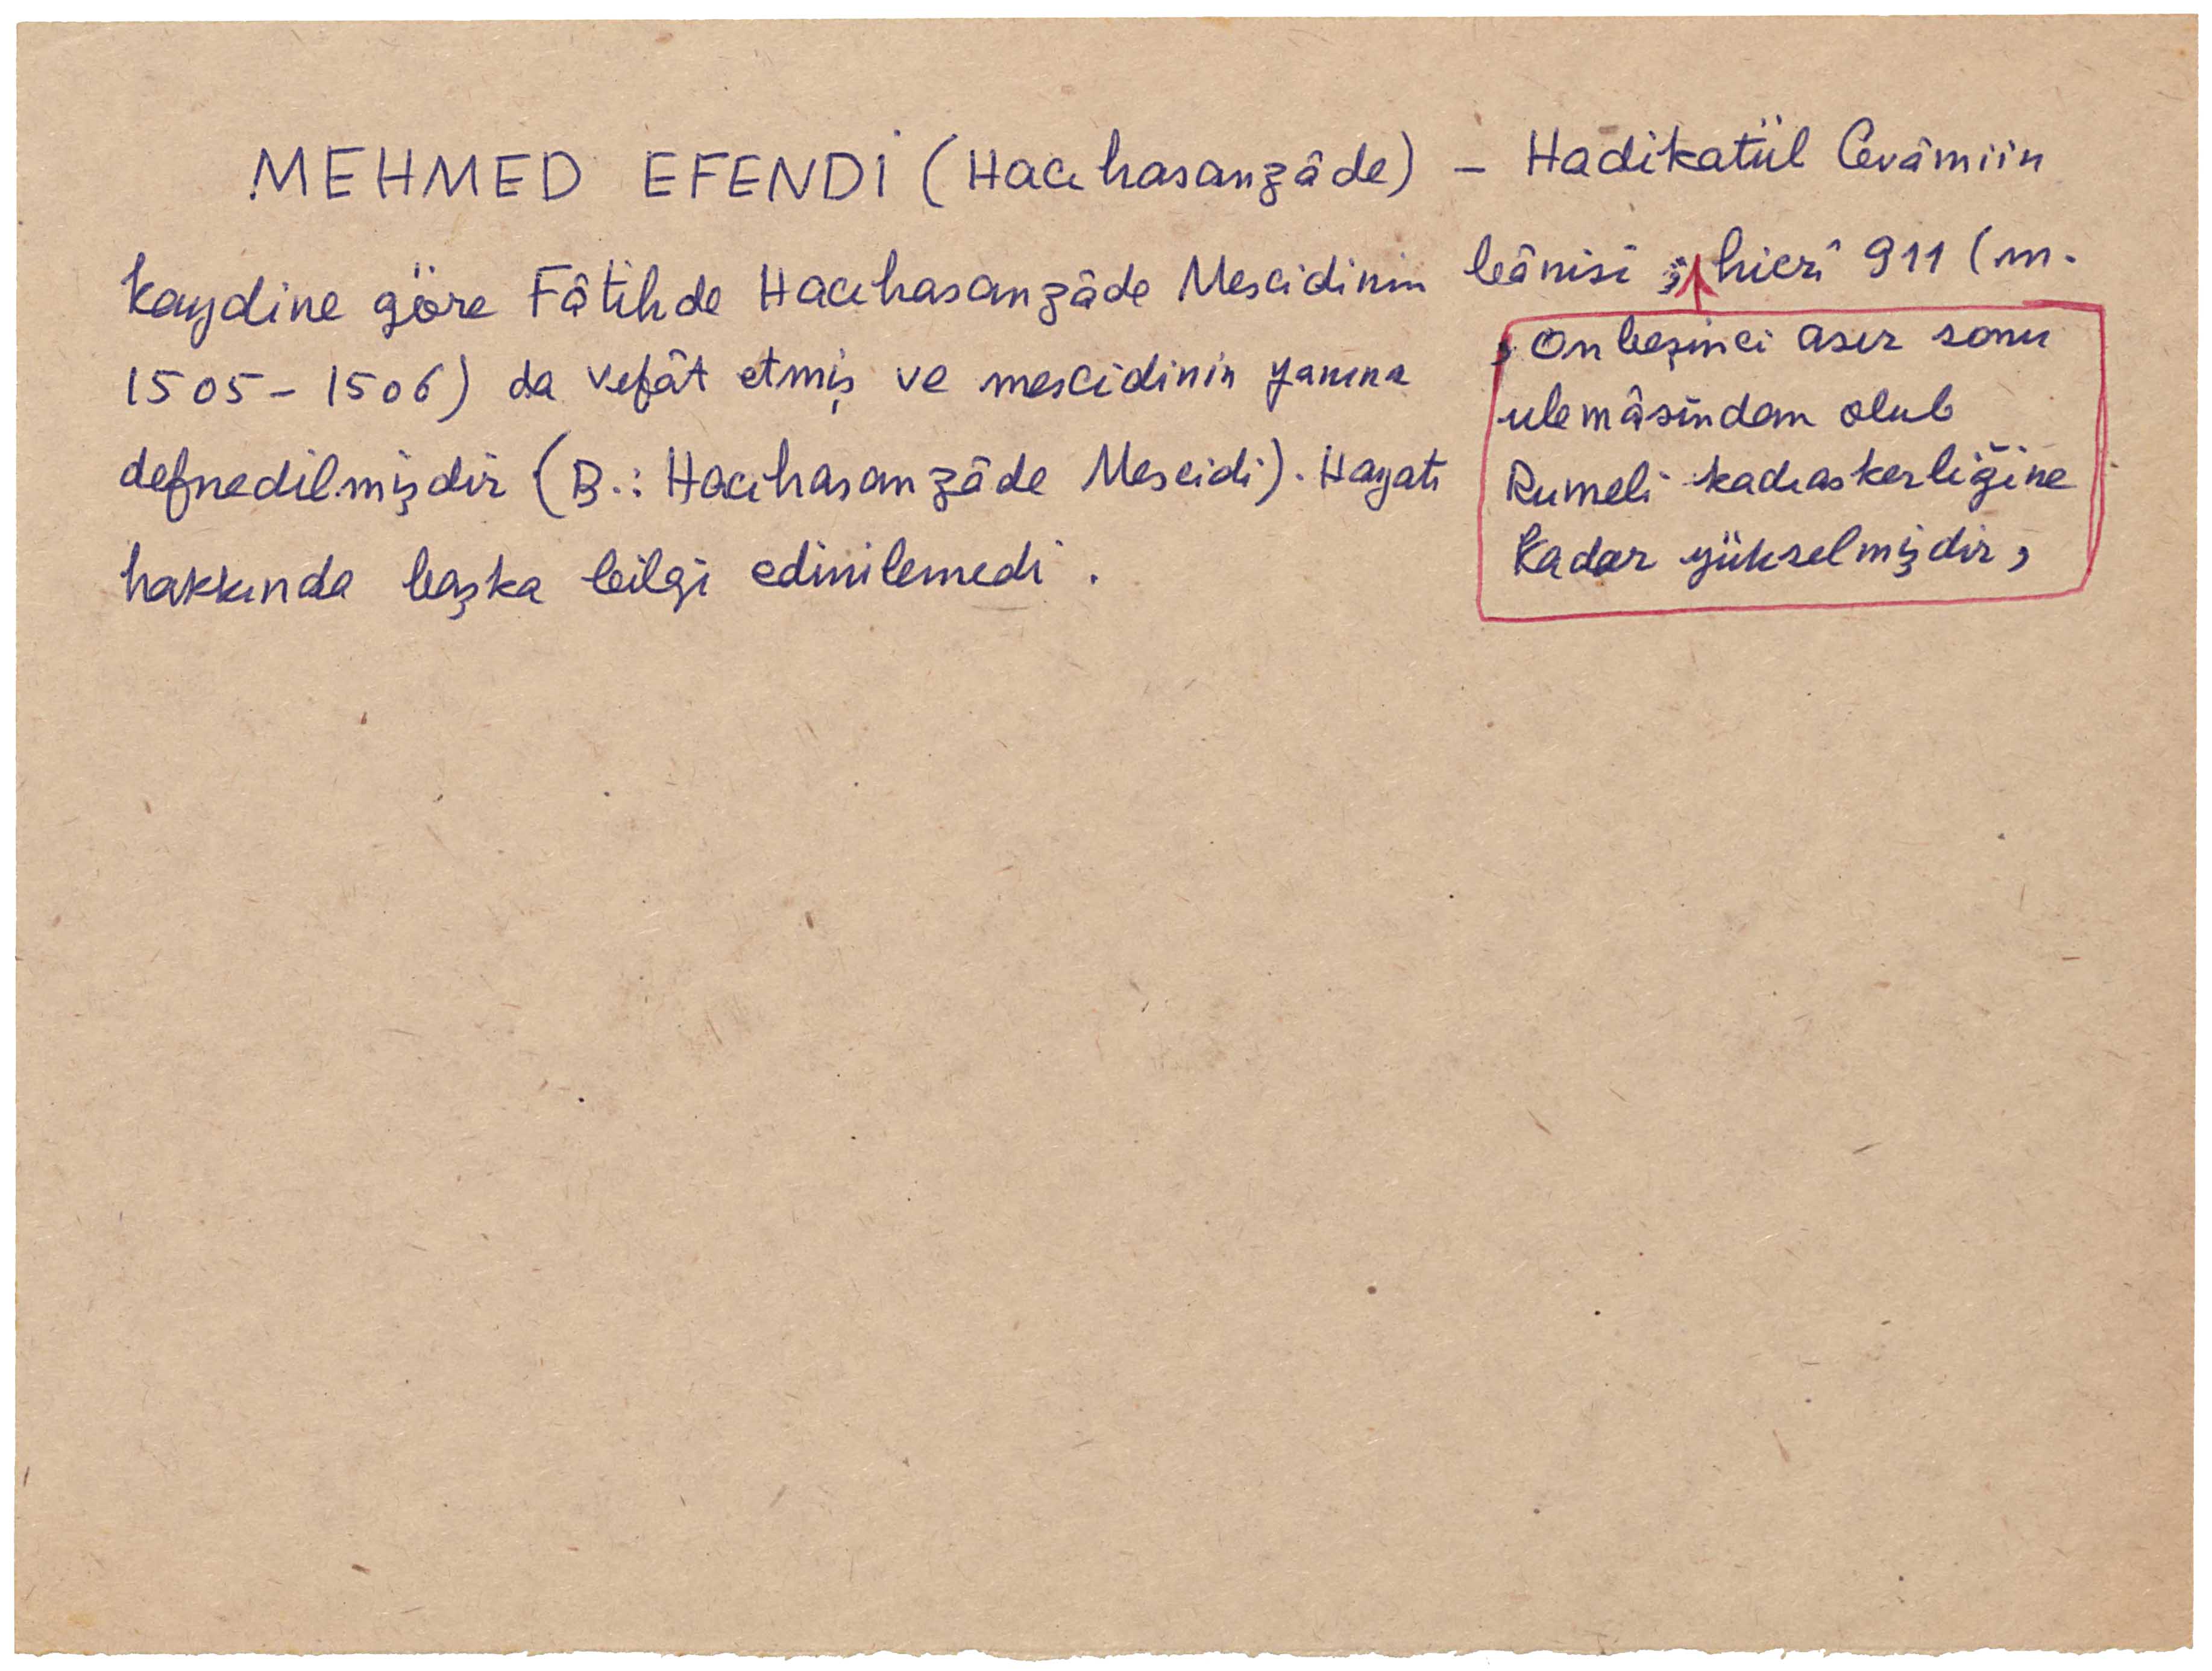 MEHMED EFENDİ (Hacıhasanzâde) – Hadikatül Cevâmiin
kaydine göre Fâtihde Hacıhasanzâde Mescidinin bânisi ; hicrî 911 (m.
1505 – 1506) da vefât etmiş ve mescidinin yanına
defnedilmişdir (B.: Hacıhasanzâde Mescidi). Hayatı
hakkında başka bilgi edinilemedi.
, Onbeşinci asır sonu
ulemâsından olub
Rumeli kadıaskerliğine
kadar yükselmişdir,